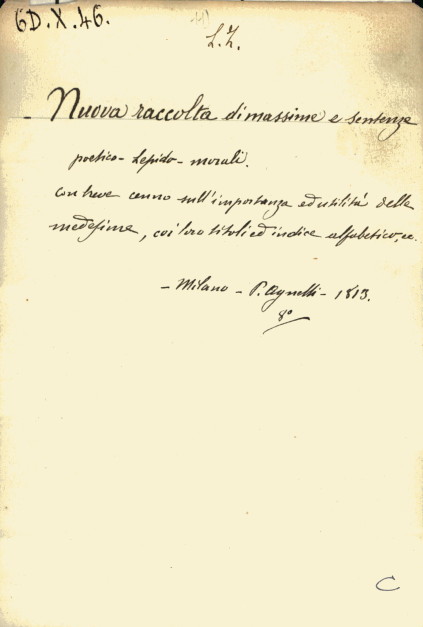 6D.X.46.
L.Z.
- Nuova raccolta di massime e sentenze
poetico-lepido-morali.
con breve cenno sull'importanza ed utilità delle
medesime, coi loro titoli ed indice alfabetico, ec.
- Milano - P. Agnelli - 1813.
8º
C